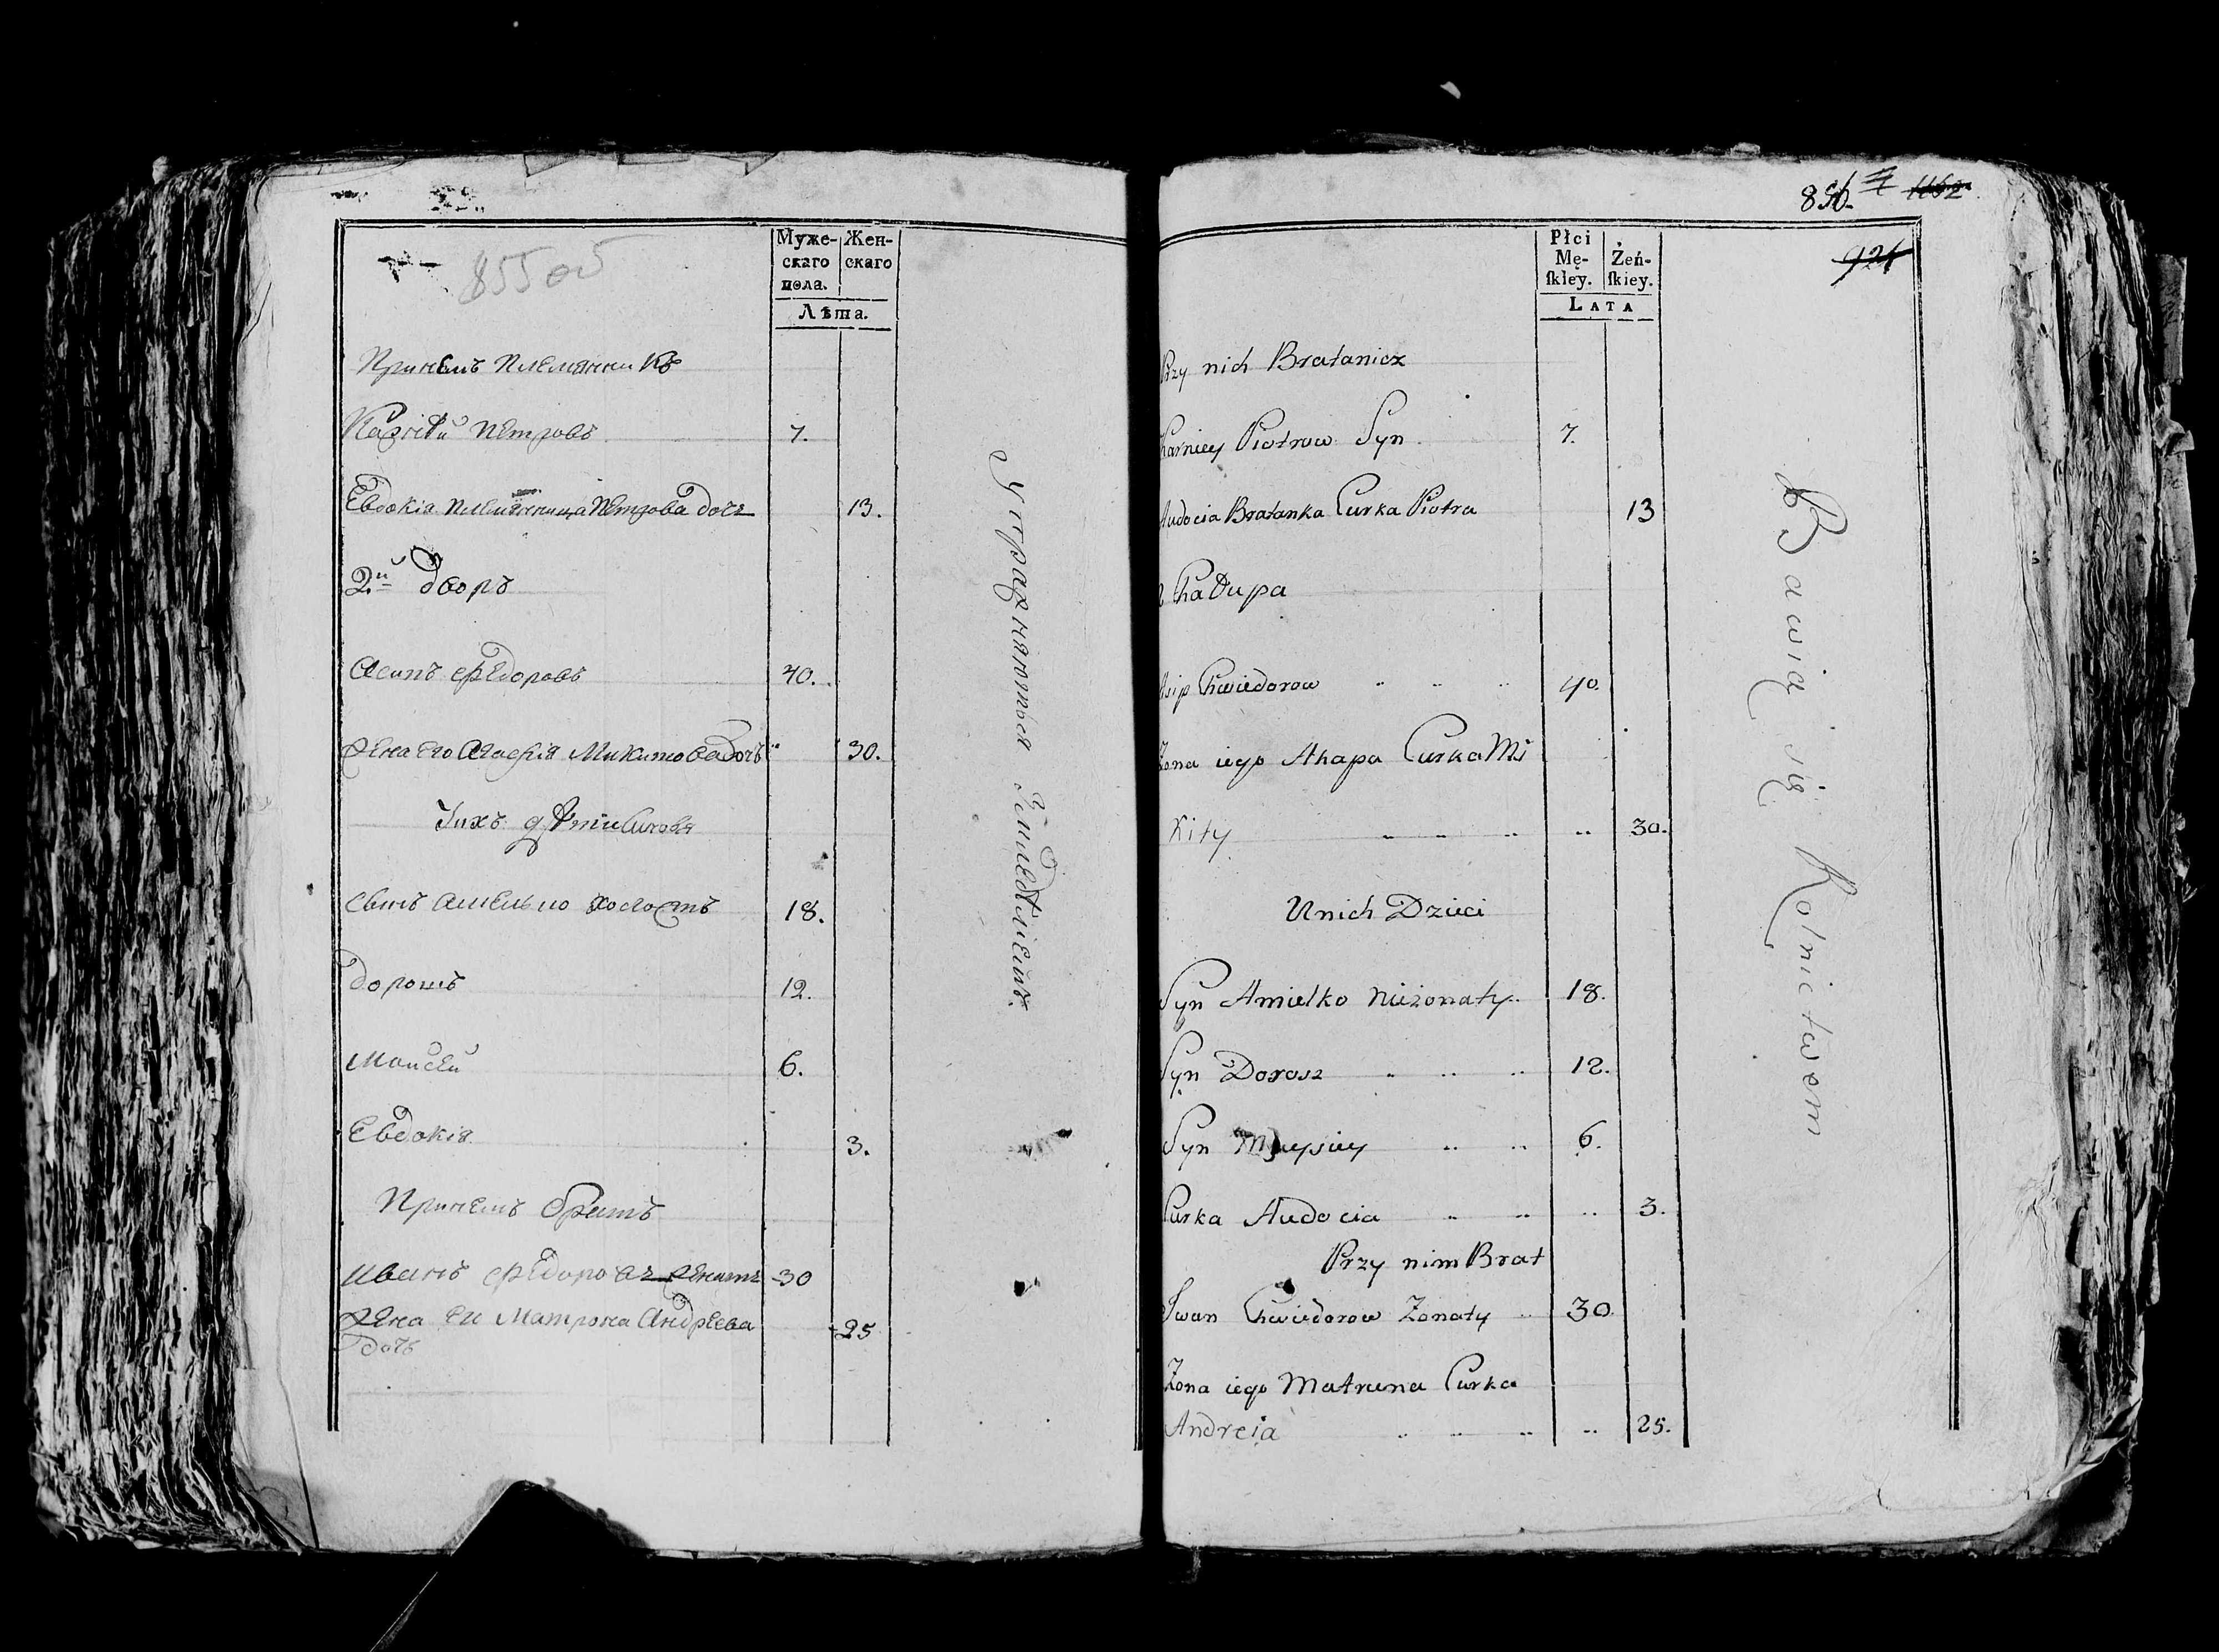 855 об
Муже-
скаго
пола.
Жен-
скаго
Лѣта.
При немъ племянникъ
Карнѣй Петровъ 7.
Евдокія племянница Петрова дочь 13.
2й дворъ
Асипъ Федоровъ 40.
Жена его Агафія Микитова дочь 30.
У ихъ дѣти
Сынъ Амельно холостъ 18.
Дорошъ 12.
Моисей 6.
Евдокія 3.
При немъ братъ
Иванъ Федоровъ женатъ 30
Жена ей Матрона Андреева 25
дочь
Упражняютья Земледѣліемъ.
856. 1162
921
Płci
Mę-
ſkiey.
Żeń-
ſkiey.
LATA
Przy nich Bratanicz
Karniey Piotrow Syn 7.
Audocia Bratanka Curka Piotra 13
2 Chałupa
Asip Chwiedorow 40.
Żona iego Ahapa Curka Mi
kity 30.
U nich Dzieci
Syn Amielko nieżonaty 18.
Syn Dorosz 12.
Syn Moysiey 6.
Curka Audocia 3.
Przy nim Brat
Iwan Chwiedorow Żonaty 30.
Żona iego Matruna Curka
Andreia 25.
Bawią się Rolnictwem